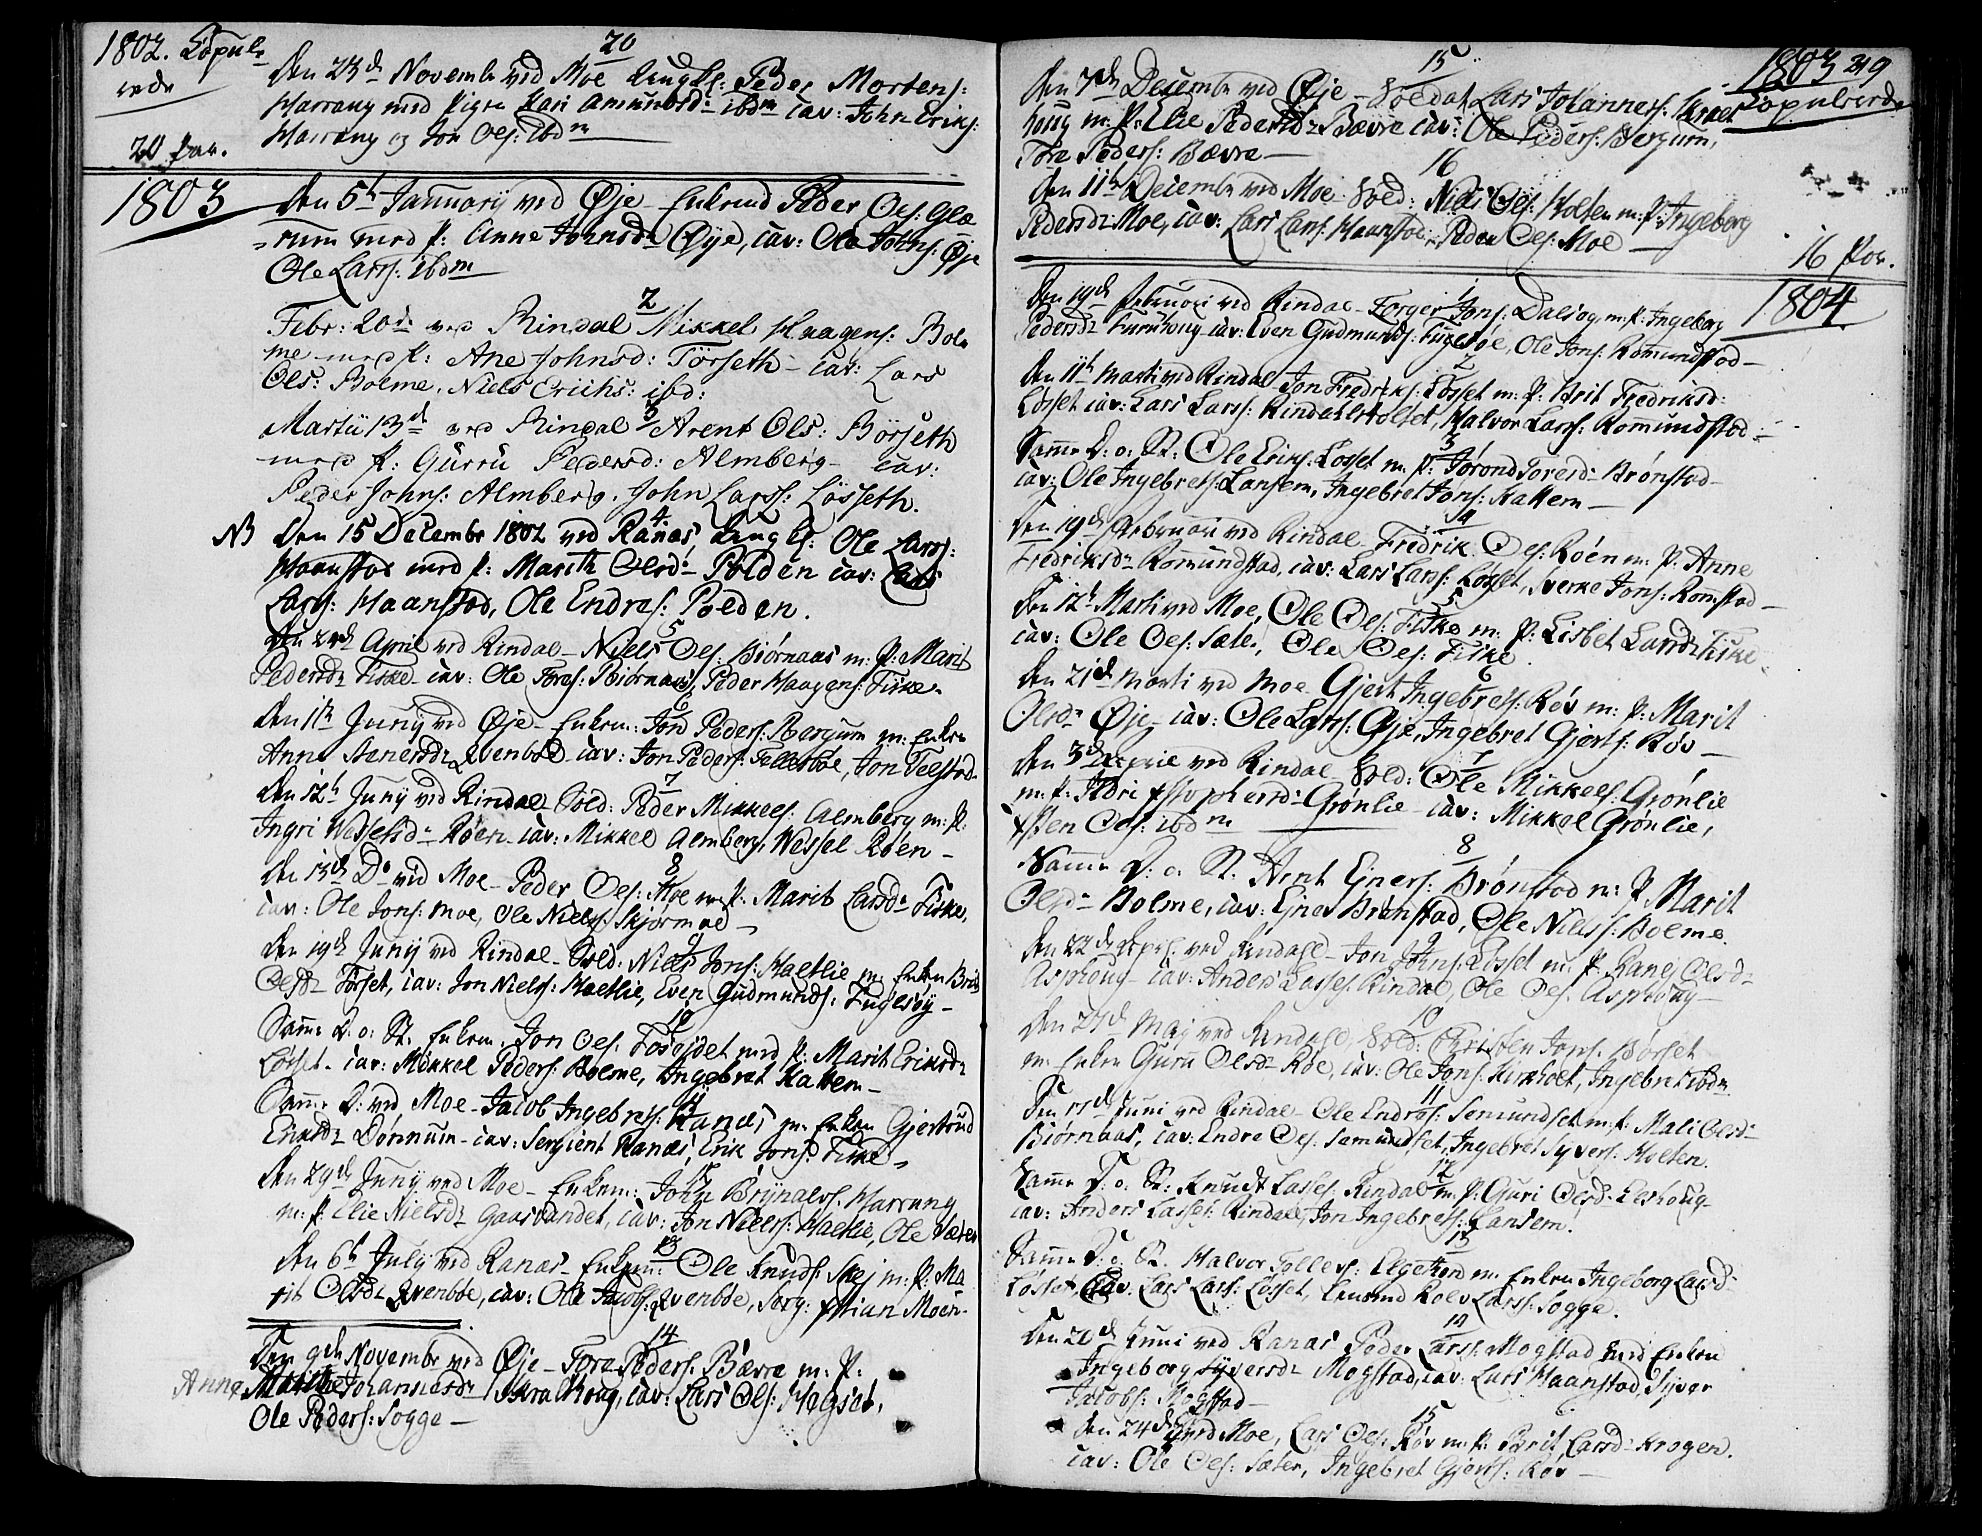 1802. Copule-
rede
20 par.
20
Den 23d Novembr ved Moe Ungkl: Peder Mortens:
Harrang med Pigen Kari Amundsdr ibdm cav: John Eriks:
Harrang og Jon Ols: ibdm
1803
Den 5t January ved Øje - Enkemd Peder Ols: Glæ
rum med P: Anne Johnsdr Øye, cav: Ole Johns: Øje
Ole Larss: ibdm
2
Febr: 20de ved Rindal Mikkel Haagens: Bol-
me med P: Ane Johnsd: Törseth - cav: Lars
Ols: Bolme, Niels Erichs: ibd:
3
Martii 13d ved Rindal Arent Ols: Börseth
med P: Gürrü Pedersd: Almberg - cav:
Peder Johns: Almberg. John Larss: Lösseth.
4
NB Den 15 Decembr 1802 ved Ranæs Ungkl: Ole Larss:
Haanstad med P: Marith Olsdr Polden cav: Lars
Larss: Haanstad, Ole Endres: Polden.
5
Den 24de April ved Rindal - Niels Ols: Biørnaas m: P: Marit
Pedersdr Fiske - cav: Ole Tores: Biørnaas, Peder Haagens: Fiske
6
Den 11te Juny ved Øje - Enkem: Jon Peders: Bergum m: Enken
Anne Stenersdr Qvenboe - cav: Jon Peders: Fallesboe, Jon Telstad.
7
Den 12te Juny ved Rindal Sold: Peder Mikkels: Almberg m: P:
Ingri Wesselsdr Røen - cav: Mikkel Almberg, Wessel Røen -
8
Den 13de Do ved Moe - Peder Ols: Moe m: P: Marit Larsdr Fiske,
cav: Ole Jons: Moe, Ole Niels: Skjørmoe -
9
Den 19de Juny ved Rindal - Sold: Niels Jons: Haltlie m: Enken Brit
Olsdr Torset, cav: Jon Niels: Haltlie, Even Gudmunds: Fuglsøy -
10
Samme D: o: St. Enkem: Jon Ols: Foseidet med P: Marit Eriksdr
Løsset - cav: Mikkel Peders: Bolme, Ingebret Kattem -
11
Samme D: ved Moe - Jacob Ingebrets: Ranæs m: Enken Gjertrud
Eriksdr Dønnum - cav: Sergient Ranæs, Erik Jons: Fiske -
12
Den 29de Juny ved Moe - Enkem: John Brynels: Harrang
m: P: Elie Nielsdr Gaasvandet, cav: Jon Niels: Haltlie, Ole Sæter
13
Den 6te July ved Ranæs - Enkem: Ole Knuds: Skej m: P: Ma
rit Olsdr Qvenboe, cav: Ole Jacobs: Qvenboe, Serg: Xstian Moen -
14
Den 9de Novembr ved Øje - Tore Peders: Bævre m: P:
Anne Johannesdr Skralthoug, cav: Lars Ols: Hegset,
Ole Peders: Sogge -
1803 219
Copulerede
15
Den 7de Decembr ved Øje - Soldat Lars Johannes: Skralt
houg m: P: Elie Pedersdr Bævre cav: Ole Peders: Bergum,
Tore Peders: Bævre -
16
Den 11te Decembr ved Moe - Sold: Niels Ols: Holten m: P: Ingeborg
Pedersdr Moe, cav: Lars Lars: Haanstad, Peder Ols: Moe -
16 Par.
1804
1
Den 19de Februari ved Rindal - Torger Jons: Dalsøg, m: P: Ingeborg
Pedersdr Furuhoug cav: Even Gudmunds: Fuglsøe, Ole Jons: Romundstad -
2
Den 11te Marti ved Rindal - Jon Fredriks: Løsset m: P: Brit Fredriksd:
Løsset cav: Lars Larss: Rindahlsholtet, Halvor Larss: Romundstad -
3
Samme D: o: St: Ole Eriks: Løsset m: P: Jorond Toresdr Brønstad -
cav: Ole Ingebrets: Lansem, Ingebret Jons: Kattem -
4
Den 19de Februari ved Rindal - Fredrik Ols: Røen m: P: Anne
Fredriksdr Romundstad, cav: Lars Larss: Løsset, Sverke Jons: Romstad -
5
Den 12te Marti ved Moe, Ole Ols: Fiske m: P: Lisbet Larsdr Fiske
cav: Ole Ols: Sæter, Ole Ols: Fiske.
6
Den 21de Marti ved Moe - Gjert Ingebrets: Røv m: P: Marit
Olsdr Øje - cav: Ole Larss: Øje, Ingebret Gjerts: Røv -
7
Den 3de Aprie ved Rindal - Sold: Ole Mikkels: Grønlie
m: P: Ildri Xstophersdr Grønlie - cav: Mikkel Grønlie,
Esten Ols: ibdm
8
Samme D: o: St. Arnt Ejners: Brønstad m: P: Marit
Olsdr Bolme, cav: Ejner Brønstad, Ole Nilss: Bolme.
9
Den 22de April ved Rindahl - Jon Johns: Løsset m: P: Ranej Olsdr
Asphoug - cav: Anders Lasses: Rindal, Ole Ols: Asphoug -
10
Den 27de Maj ved Rindahl, Sold: Christen Jons: Børset
m: Enken Guru Olsdr Røe, cav: Ole Jons: Kirkholt, Ingebret ibdm.
11
Den 17de Juni ved Rindal - Ole Endres: Semundset m: P: Mali Olsdr
Biørnaas, cav: Endre Ols: Semundset, Ingebret Syvers: Holten.
12
Samme D: o: St: Knudt Lasses: Rindal m: P: Guri Olsdr Elshoug -
cav: Anders Lasses: Rindal, Jon Ingebrets: Lansem.
13
Samme D: o: St. Halvor Tollevs: Elgethon m: Enken Ingeborg Larsdr
Løsset, cav: Lars Larss: Løsset, Enkemd Rolv Larss: Sogge.
14
Den 20de Juni ved Ranæs Peder Larss: Mogstad med Enken
Ingeborg Syversdr Mogstad, cav: Lars Haanstad, Syver
Jacobs: Mogstad -
15
Den 24de ved Moe, Lars Ols: Røv m: P: Brit Larsdr Krogen.
cav: Ole Ols: Sæter, Ingebret Gjerts: Røv -